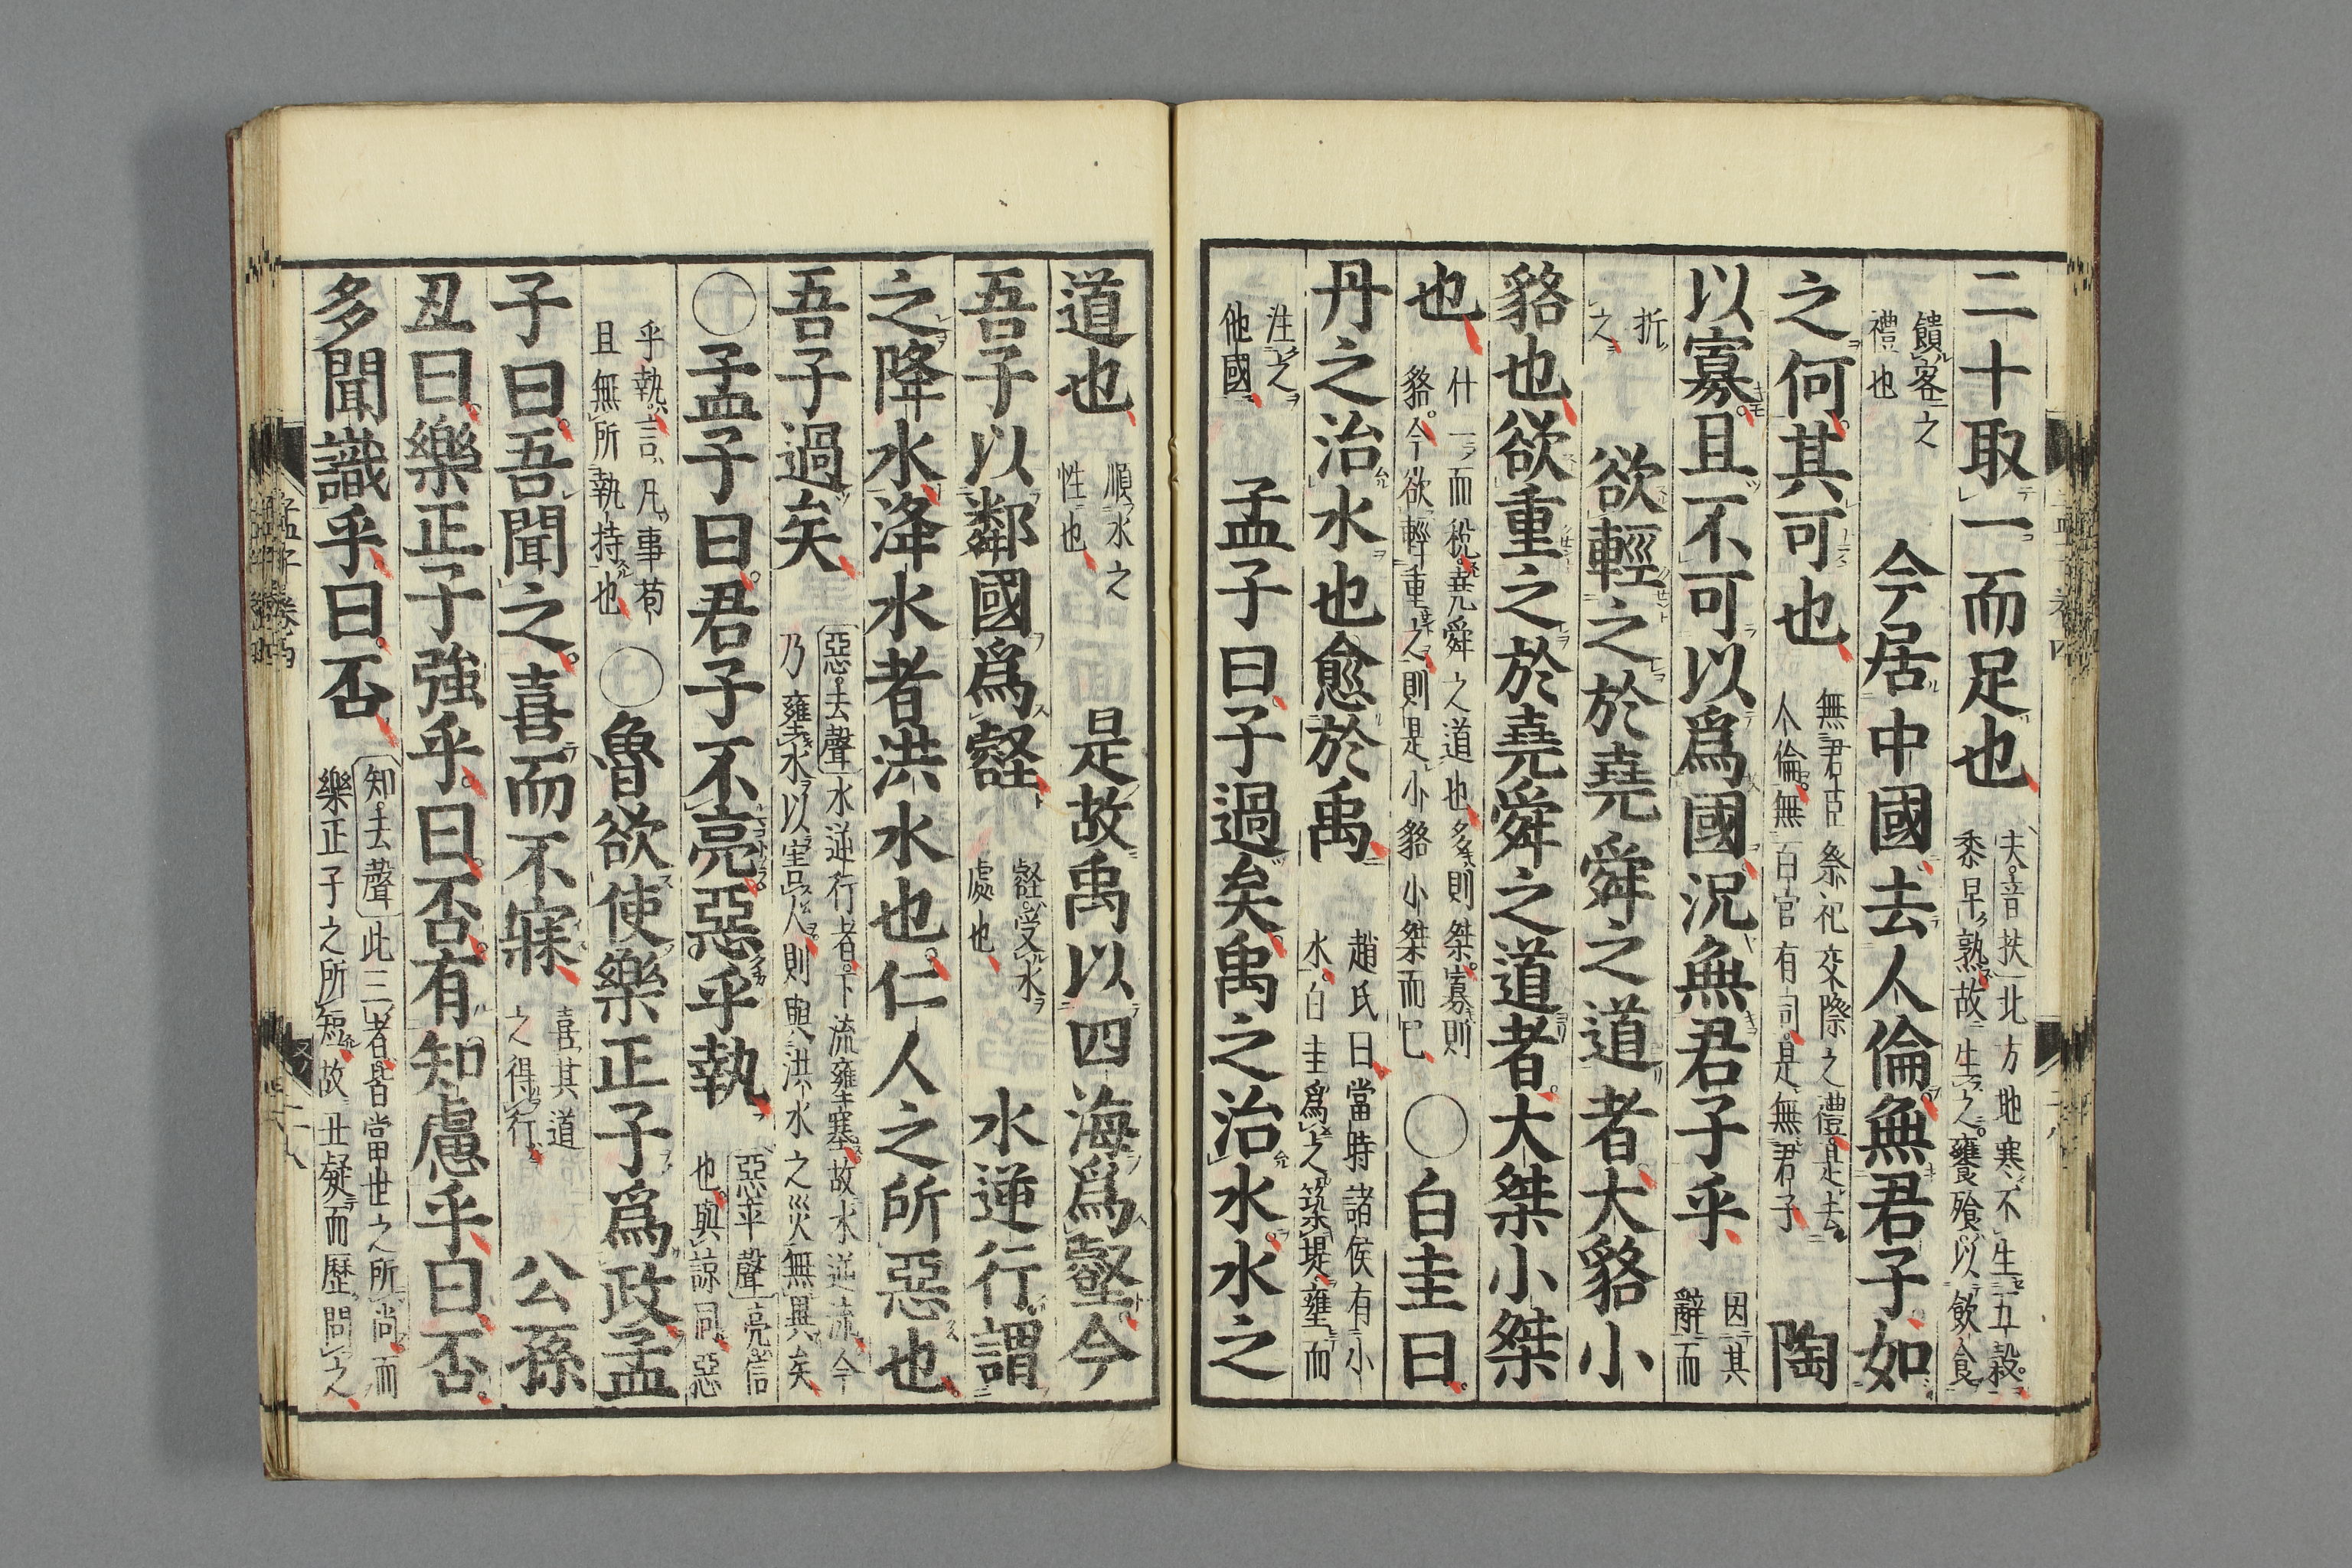 二十取一而足也夫音扶北方地寒不生五穀黍早熟故生之饔飱以飲食
饋客之禮也今居中國去人倫無君子如
之何其可也無君臣祭祀交際之禮是去人倫無百官有司是無君子陶
以寡且不可以爲國況無君子乎因其辭而
折之欲輕之於堯舜之道者大貉小
貉也欲重之於堯舜之道者大桀小桀
也什一而稅堯舜之道也多則桀寡則貉今欲輕重之則是小貉小桀而已○白圭曰
丹之治水也愈於禹趙氏曰當時諸侯有小水白圭爲之築堤壅而
注之他國孟子曰子過矣禹之治水水之
道也順水之性也是故禹以四海爲壑今
吾子以鄰國爲壑壑受水處也水逆行謂
之降水洚水者洪水也仁人之所惡也
吾子過矣惡去聲水逆行者下流壅塞故水逆流今乃壅水以害人則與洪水之災無異矣
○孟子曰君子不亮惡乎執惡平聲亮信也與諒同惡
乎執言凡事苟且無所執持也○魯欲使樂正子爲政孟
子曰吾聞之喜而不寐喜其道之得行公孫
丑曰樂正子強乎曰否有知慮乎曰否
多聞識乎曰否知去聲此三者皆當世之所尚而樂正子之所短故丑疑而歷問之
孟子卷四